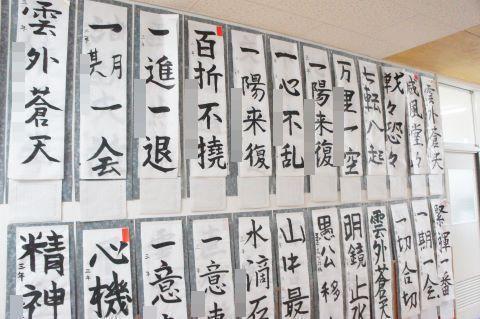 雲外蒼天
威風堂々
戦々恐々
七転八起
万里一空
一陽来復
一心不乱
一陽来復
百折不撓
一進一退
一期一会
雲外蒼天
緊褌一番
一期一会
一切合切
雲外蒼天
明鏡止水
愚公移
山中最
水滴石
一意
一意
心機
二年
精神
三年